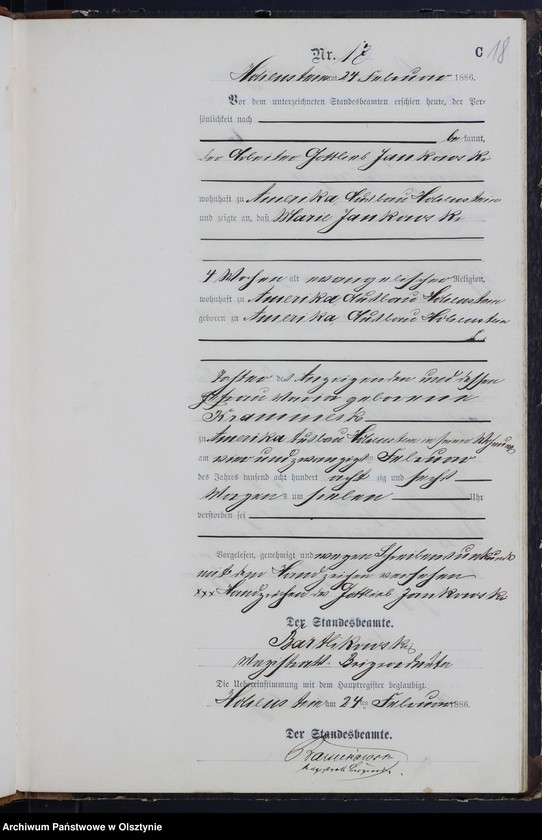 Nr. 17
C 18
Hohenstein am 24 Februar 1886.
Vor dem unterzeichneten Standesbeamten erschien heute, der Per-
sönlichkeit nach
bekannt,
der Arbeiter Gottlieb Jankowski
wohnhaft zu Amerika Ausbau Hohenstein
und zeigte an, daß Marie Jankowski
4 Wochen alt evangelischer Religion,
wohnhaft zu Amerika Ausbau Hohenstein
geboren zu Amerika, Ausbau Hohenstein
Tochter des Anzeigenden und dessen
Ehefrau geborene
zu Amerika Ausbau Hohenstein in seiner Wohnung
am vier und zwanzigsten Februar
des Jahres tausend acht hundert achtzig und sechs
Morgens um sieben Uhr
verstorben sei
Vorgelesen, genehmigt und wegen Schreibensunkunde
mit dem Handzeichen versehen
xxx Handzeichen des Gottlieb Jankowski
Der Standesbeamte.
Bartlikowski
Die Uebereinstimmung mit dem Hauptregister beglaubigt.
Hohenstein am 24ten Februar 1886.
Der Standesbeamte.
Archiwum Państwowe w Olsztynie